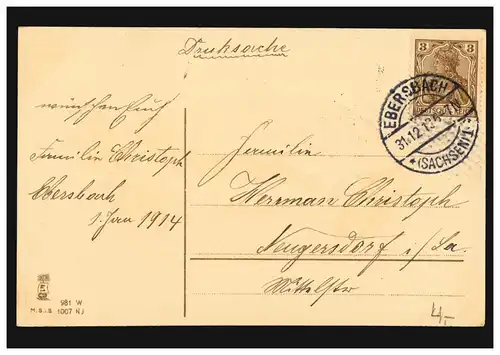 Drucksache
3
EBERSBACH
31.12.13
*(SACHSEN)
wünschen Euch
Familie Christoph
Ebersbach
1. Jan 1914
Familie
Herrman Christoph
Neugersdorf i/Sa.
Mittelstr
981 W
M.S.i.S 1007 NJ
4,-